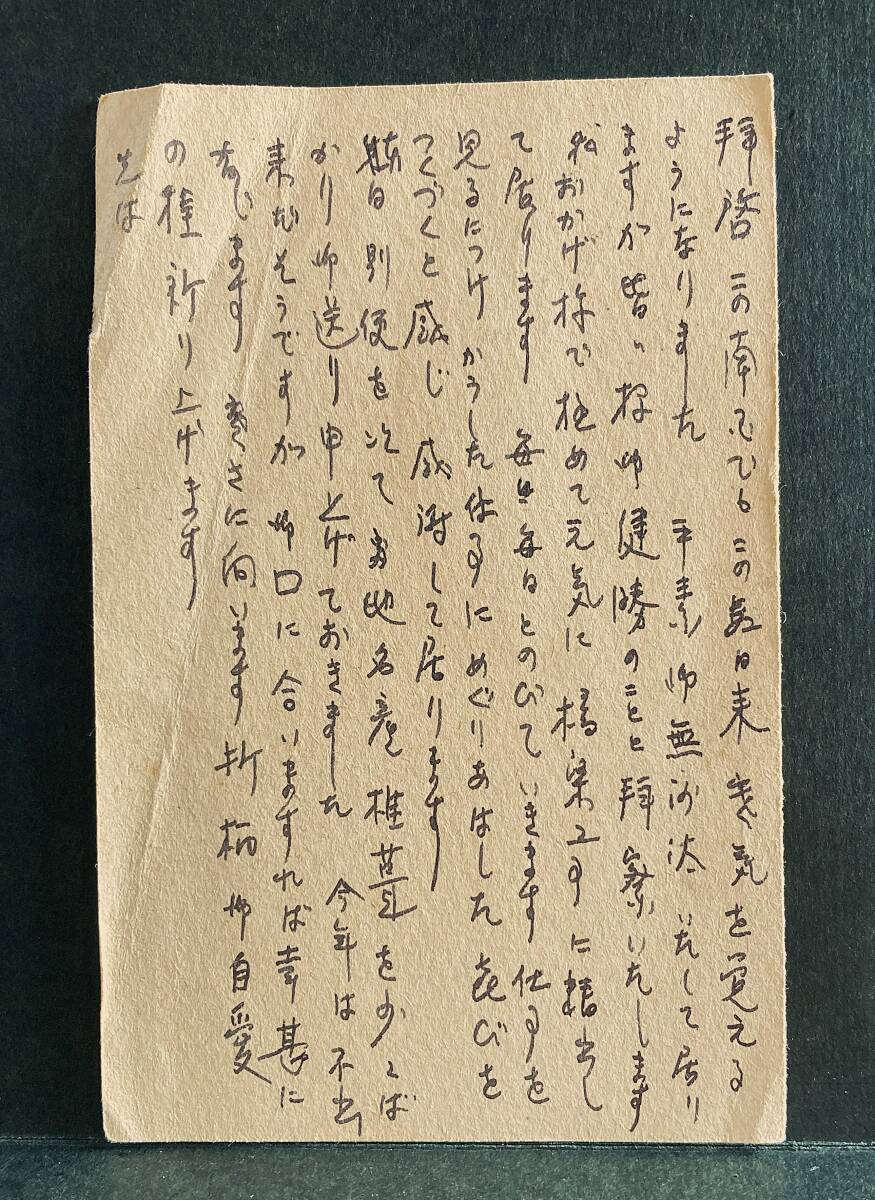 拝啓 この南国でもこの数日来寒気を覚える
ようになりました 平素御無沙汰いたして居り
ますが皆々様御健勝のことと拝察いたします
私おかげ様で極めて元気に橋梁工事に精出し
て居ります 毎日毎日とのびていきます 仕事を
見るにつけ かうした仕事にめぐりあはした喜びを
つくづくと感じ 感謝して居ります
頼日別便を以て当地名産椎茸を少々ば
かり御送り申上げておきました 今年は不出
来だそうですが御口に合いますれば幸甚に
存じます 寒さに向います折柄御自愛
の程祈り上げます
先は